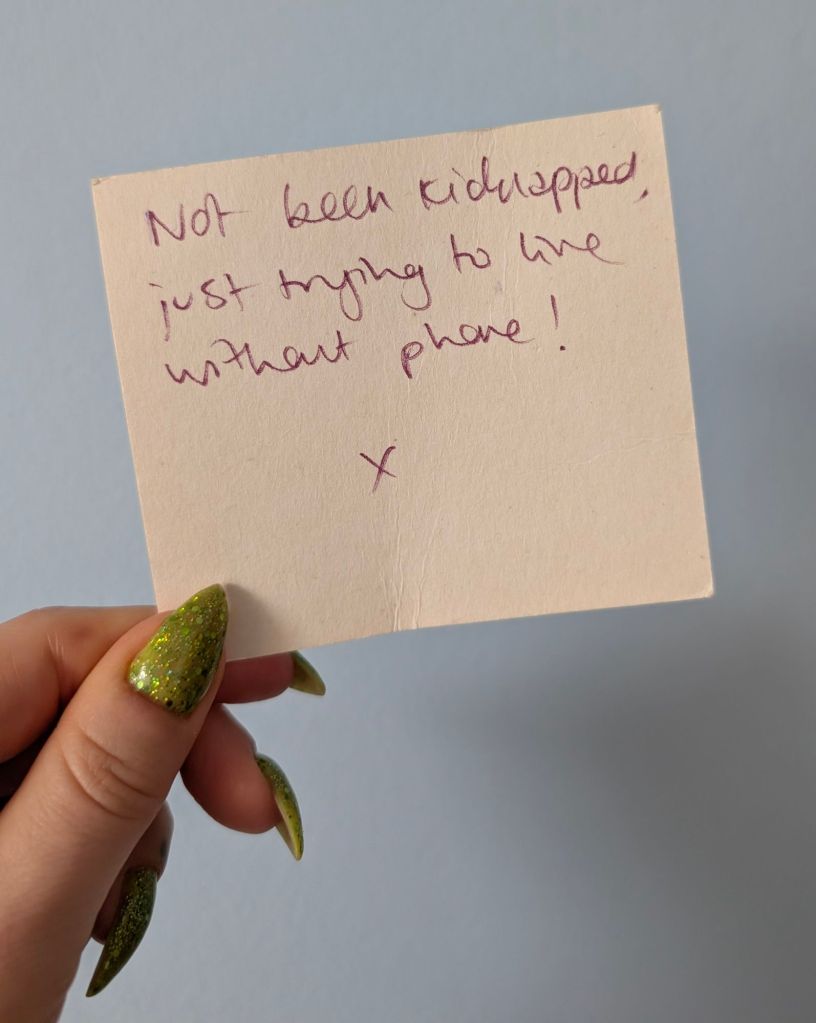 Not been kidnapped,
just trying to live
without phone!
X